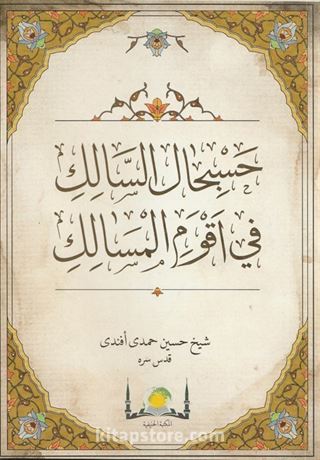 حَسبِحَال السَّالِكِ
فِي اَقوَمِ المَسَالِكِ
شيخ حسين حمدى أفندى
قدس سره
المكتبة الحنيفية
kitapstore.com